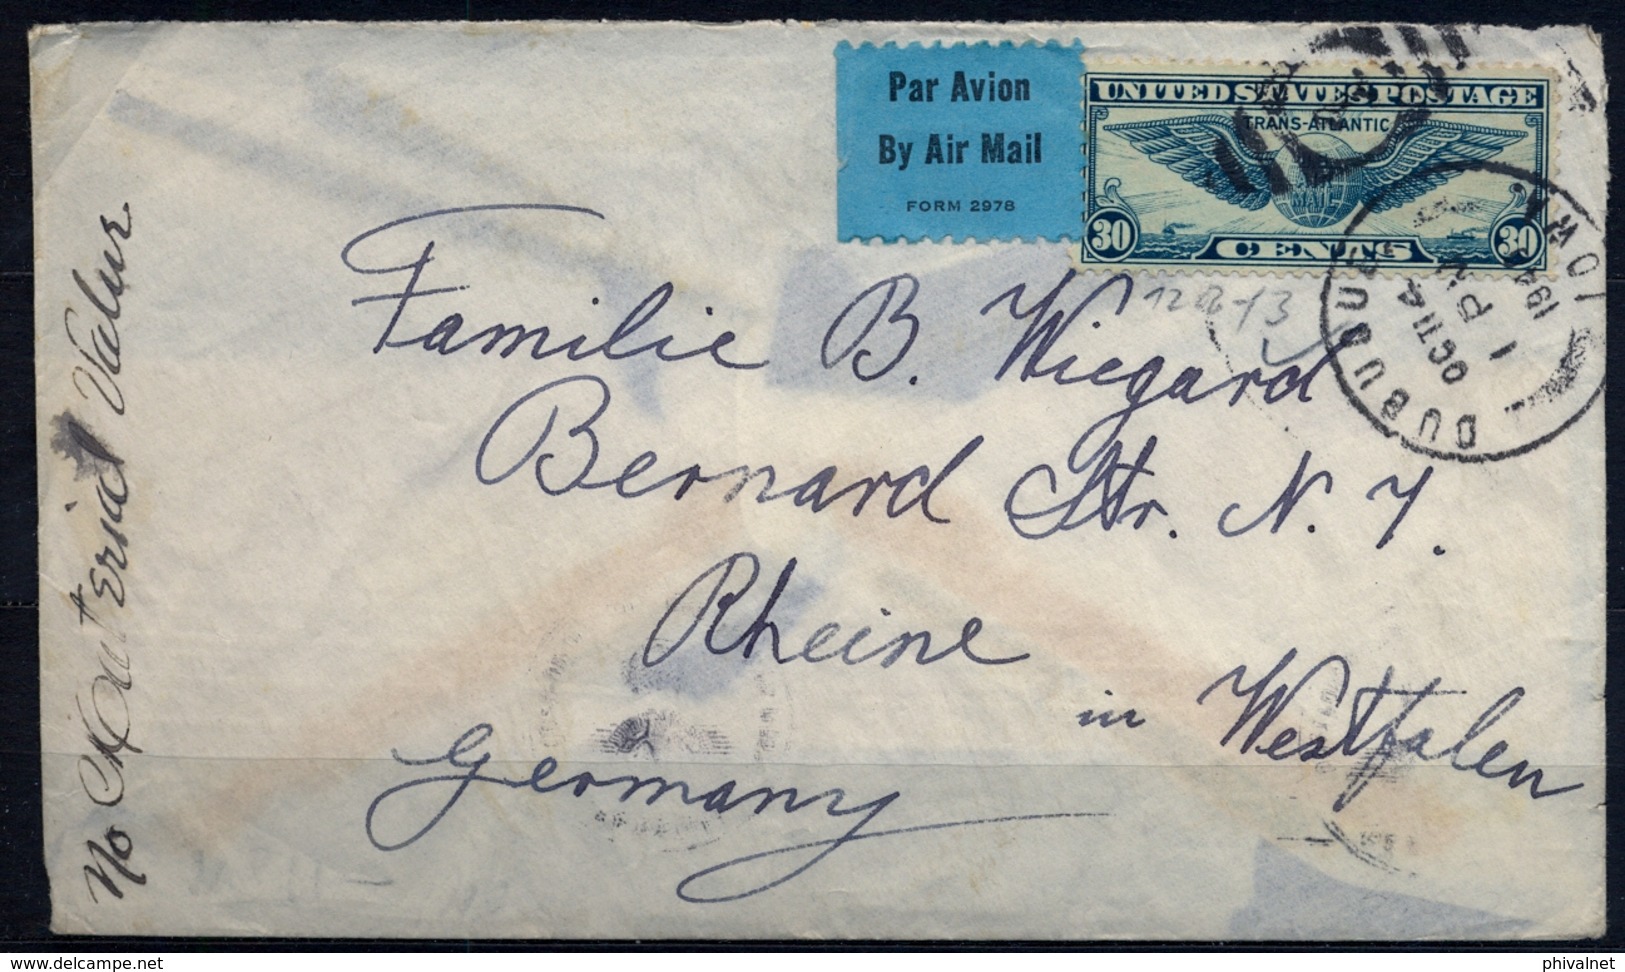 Par Avion
By Air Mail
FORM 2978
UNITED STATES POSTAGE
TRANS-ATLANTIC
MAIL
30 CENTS 30
DUBUQUE
IOWA
OCT 14
1 PM
Familie B. Wiegard
Bernard Str. N. 7.
Rheine
in Westfalen
Germany
No Value
delcampe.net
phivalnet